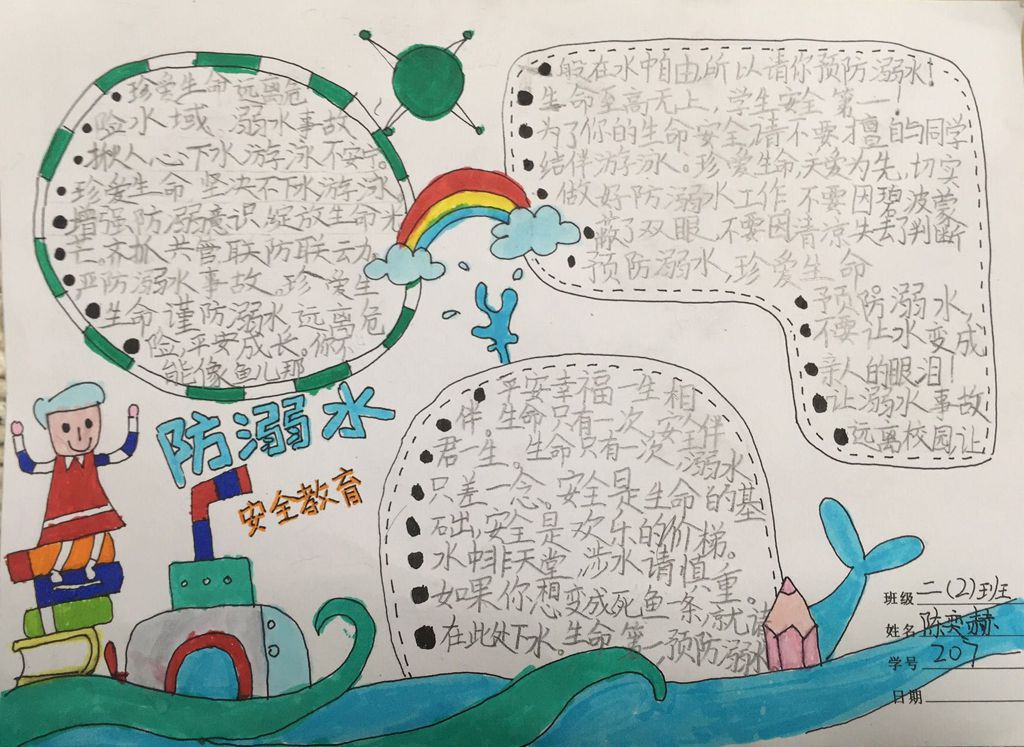 珍爱生命远离危
险水域、溺水事故
揪人心下水游泳不安宁。
珍爱生命坚决不下水游泳
增强防溺意识绽放生命光
芒。齐抓共管联防联动。
严防溺水事故。珍爱生
生命谨防溺水远离危
险,平安成长。你不
能像鱼儿那
般在水中自由,所以请你预防溺水!
生命至高无上,学生安全第一!
为了你的生命安全请不要擅自与同学
结伴游泳。珍爱生命,关爱为先,切实
做好防溺水工作不要因碧波蒙
蔽了双眼,不要因清凉失去了判断
预防溺水,珍爱生命
预防溺水,
不要让水变成
亲人的眼泪!
让溺水事故
远离校园让
平安幸福一生相
伴。生命只有一次安全伴
君一生。生命只有一次溺水
只差一念。安全是生命的基
础,安全是欢乐的阶梯。
水中非天堂,涉水请慎重。
如果你想变成死鱼一条,就请
在此处下水。生命第一,预防溺水
防溺水
安全教育
班级 二(2)班
姓名 陈奕赫
学号 207
日期